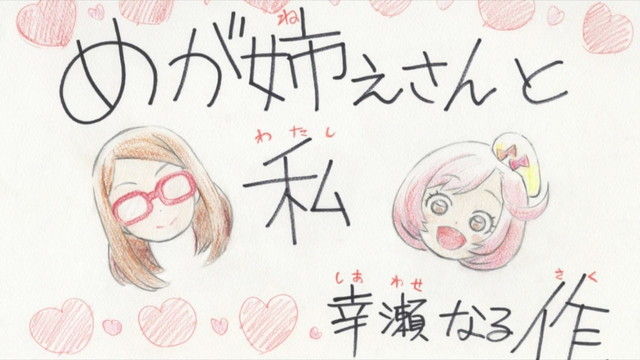 ね
めが姉ぇさんと
わたし
私
しあわせ さく
幸瀬なる作